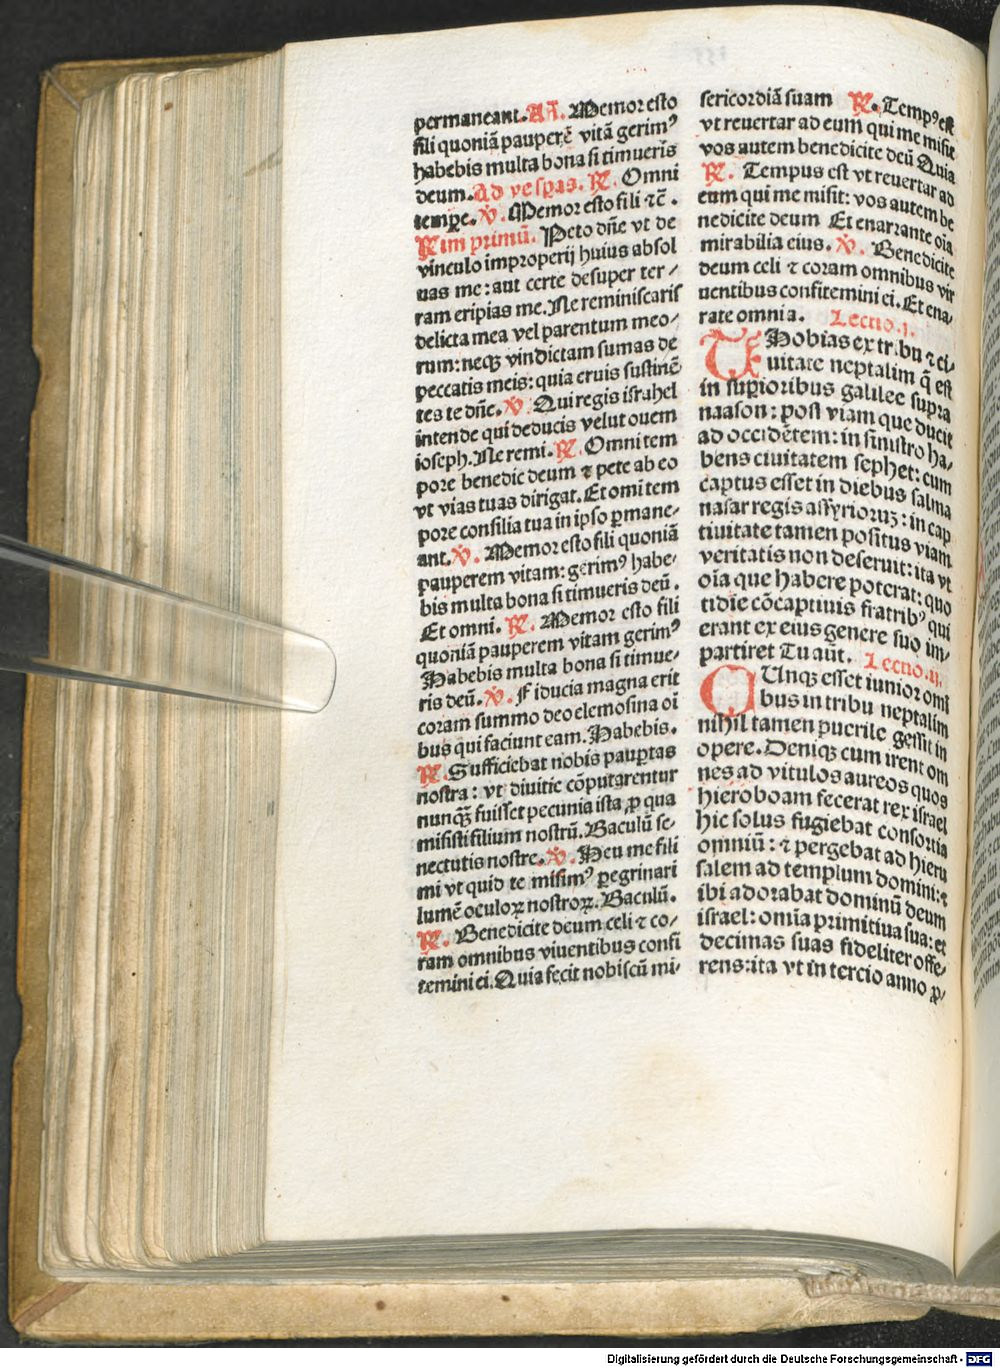 permaneant. Añ. Memor esto
fili quoniã pauperẽ vitã gerimꝰ
habebis multa bona si timueris
deum. Ad vesꝑas. ℟. Omni
temꝑe. ℣. Memor esto fili ⁊c̃.
℟ im primũ. Peto dñe vt de
vinculo improperij huius absol
uas me: aut certe desuper ter⸗
ram eripias me. Ne reminiscaris
delicta mea vel parentum meo⸗
rum: neqꝫ vindictam sumas de
peccatis meis: quia eruis sustinẽ
tes te dñe. ℣. Qui regis israhel
intende qui deducis velut ouem
ioseph. Ne remi. ℟. Omni tem
pore benedic deum ⁊ pete ab eo
vt vias tuas dirigat. Et omi tem
pore consilia tua in ipso ꝑmane⸗
ant. ℣. Memor esto fili quoniã
pauperem vitam: gerimꝰ habe⸗
bis multa bona si timueris deũ.
Et omni. ℟. Memor esto fili
quoniã pauperem vitam gerimꝰ
Habebis multa bona si timue⸗
ris deũ. ℣. Fiducia magna erit
coram summo deo elemosina oĩ
bus qui faciunt eam. Habebis.
℟. Sufficiebat nobis pauꝑtas
nostra: vt diuitie cõputarentur
nunqꝫ̃ fuisset pecunia ista ꝓ qua
misisti filium nostrũ. Baculũ se⸗
nectutis nostre. ℣. Heu me fili
mi vt quid te misimꝰ ꝑegrinari
lumẽ oculoꝝ nostroꝝ. Baculũ.
℟. Benedicite deum celi ⁊ co⸗
ram omnibus viuentibus confi
temini ei. Quia fecit nobiscũ mi⸗
sericordiã suam ℟. Tempꝰ est
vt reuertar ad eum qui me misit
vos autem benedicite deũ Quia
℟. Tempus est vt reuertar ad
eum qui me misit: vos autem be
nedicite deum Et enarrante oĩa
mirabilia eius. ℣. Benedicite
deum celi ⁊ coram omnibus viv
uentibus confitemini ei. Et ena⸗
rate omnia. Lectio .i.
THobias ex tribu ⁊ ci⸗
uitate neptalim q̃ est
in suꝑioribus galilee supra
naason: post viam que ducit
ad occidẽtem: in sinistro ha⸗
bens ciuitatem sephet: cum
captus esset in diebus salma
nasar regis assyrioruꝫ: in cap
tiuitate tamen positus viam
veritatis non deseruit: ita vt
oĩa que habere poterat: quo
tidie cõcaptiuis fratribꝰ qui
erant ex eius genere suo im⸗
partiret Tu aũt. Lectio .ij.
CUnqꝫ esset iunior omĩ
bus in tribu neptalim
nihil tamen puerile gessit in
opere. Deniqꝫ cum irent om
nes ad vitulos aureos quos
hieroboam fecerat rex israel
hic solus fugiebat consortia
omniũ: ⁊ pergebat ad hieru
salem ad templum domini: ⁊
ibi adorabat dominũ deum
israel: omĩa primitiua sua: et
decimas suas fideliter offe⸗
rens: ita vt in tercio anno ꝓ⸗
Digitalisierung gefördert durch die Deutsche Forschungsgemeinschaft - DFG